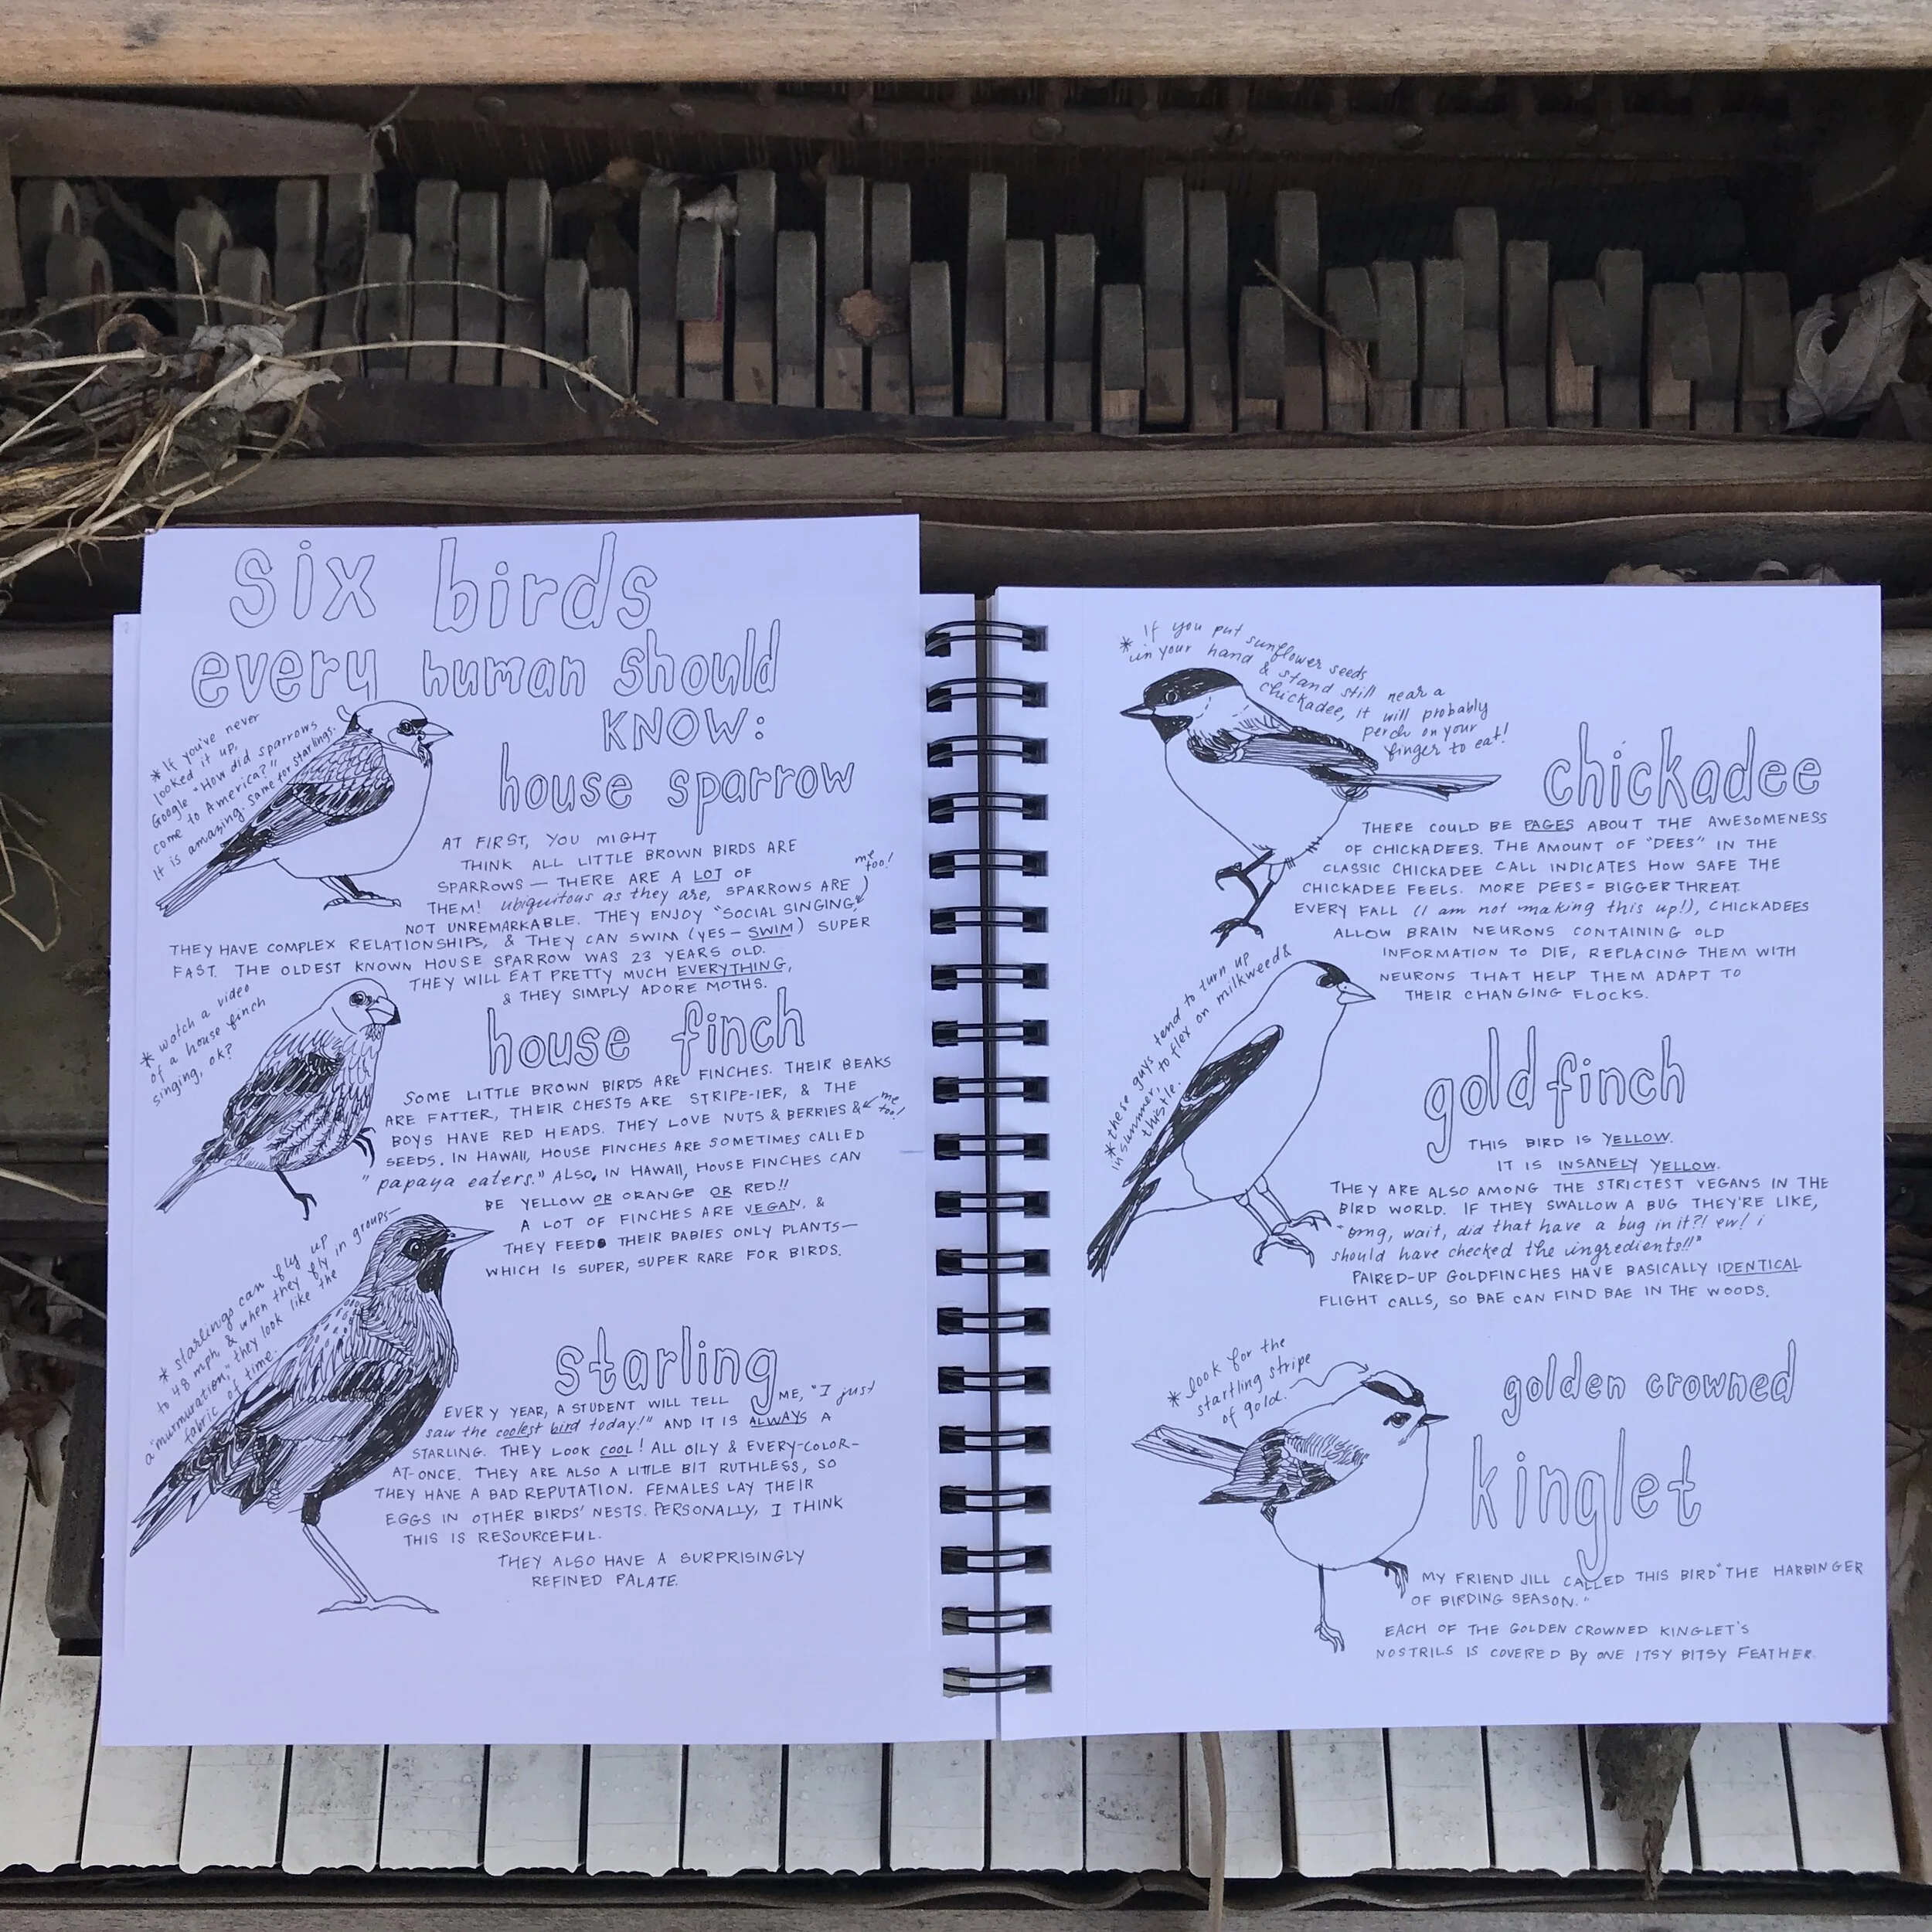 six birds
every human should
KNOW:
* If you've never
looked it up,
Google "How did sparrows
come to America?"
It is amazing. Same for starlings.
house sparrow
AT FIRST, YOU MIGHT
THINK ALL LITTLE BROWN BIRDS ARE
SPARROWS — THERE ARE A LOT OF
THEM! ubiquitous as they are, SPARROWS ARE
NOT UNREMARKABLE. THEY ENJOY "SOCIAL SINGING,"
me too!
THEY HAVE COMPLEX RELATIONSHIPS, & THEY CAN SWIM (YES – SWIM) SUPER
FAST. THE OLDEST KNOWN HOUSE SPARROW WAS 23 YEARS OLD.
THEY WILL EAT PRETTY MUCH EVERYTHING,
& THEY SIMPLY ADORE MOTHS.
* watch a video
of a house finch
singing, ok?
house finch
SOME LITTLE BROWN BIRDS ARE FINCHES. THEIR BEAKS
ARE FATTER, THEIR CHESTS ARE STRIPE-IER, & THE
BOYS HAVE RED HEADS. THEY LOVE NUTS & BERRIES &
me too!
SEEDS. IN HAWAII, HOUSE FINCHES ARE SOMETIMES CALLED
"papaya eaters." ALSO, IN HAWAII, HOUSE FINCHES CAN
BE YELLOW OR ORANGE OR RED!!
A LOT OF FINCHES ARE VEGAN, &
THEY FEED THEIR BABIES ONLY PLANTS—
WHICH IS SUPER, SUPER RARE FOR BIRDS.
* starlings can fly up
to 48 mph, & when they fly in groups—
a "murmuration," they look like the
fabric of time.
starling
EVERY YEAR, A STUDENT WILL TELL ME, "I just
saw the coolest bird today!" AND IT IS ALWAYS A
STARLING. THEY LOOK COOL! ALL OILY & EVERY-COLOR-
AT-ONCE. THEY ARE ALSO A LITTLE BIT RUTHLESS, SO
THEY HAVE A BAD REPUTATION. FEMALES LAY THEIR
EGGS IN OTHER BIRDS' NESTS. PERSONALLY, I THINK
THIS IS RESOURCEFUL.
THEY ALSO HAVE A SURPRISINGLY
REFINED PALATE.
* If you put sunflower seeds
in your hand & stand still near a
chickadee, it will probably
perch on your
finger to eat!
chickadee
THERE COULD BE PAGES ABOUT THE AWESOMENESS
OF CHICKADEES. THE AMOUNT OF "DEES" IN THE
CLASSIC CHICKADEE CALL INDICATES HOW SAFE THE
CHICKADEE FEELS. MORE DEES = BIGGER THREAT.
EVERY FALL (I am not making this up!), CHICKADEES
ALLOW BRAIN NEURONS CONTAINING OLD
INFORMATION TO DIE, REPLACING THEM WITH
NEURONS THAT HELP THEM ADAPT TO
THEIR CHANGING FLOCKS.
* these guys tend to turn up
in summer, to flex on milkweed &
thistle.
goldfinch
THIS BIRD IS YELLOW.
IT IS INSANELY YELLOW.
THEY ARE ALSO AMONG THE STRICTEST VEGANS IN THE
BIRD WORLD. IF THEY SWALLOW A BUG THEY'RE LIKE,
"omg, wait, did that have a bug in it?! ew! i
should have checked the ingredients!!"
PAIRED-UP GOLDFINCHES HAVE BASICALLY IDENTICAL
FLIGHT CALLS, SO BAE CAN FIND BAE IN THE WOODS.
* look for the
startling stripe
of gold.
golden crowned
kinglet
MY FRIEND JILL CALLED THIS BIRD "THE HARBINGER
OF BIRDING SEASON."
EACH OF THE GOLDEN CROWNED KINGLET'S
NOSTRILS IS COVERED BY ONE ITSY BITSY FEATHER.